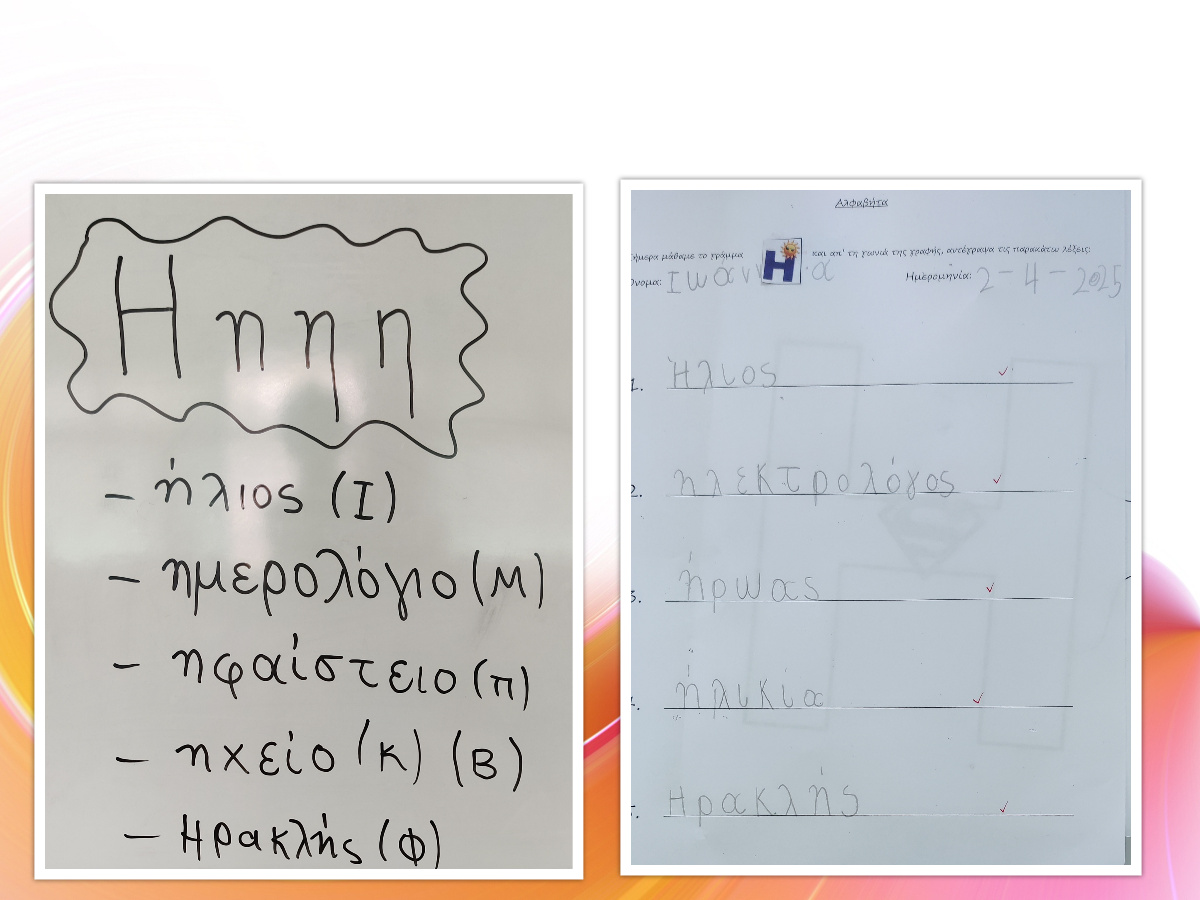 Η η η η
– ήλιος (Ι)
– ημερολόγιο (Μ)
– ηφαίστειο (π)
– ηχείο (κ) (Β)
– Ηρακλής (Φ)
Αλφαβήτα
ήμερα μάθαμε το γράμμα Η και απ' τη γωνιά της γραφής, αντέγραψα τις παρακάτω λέξεις:
Όνομα: Ημερομηνία: 2-4-2025
1. Ήλιος
2. ηλεκτρολόγος
3. ήρωας
ήλικία
Ηρακλής